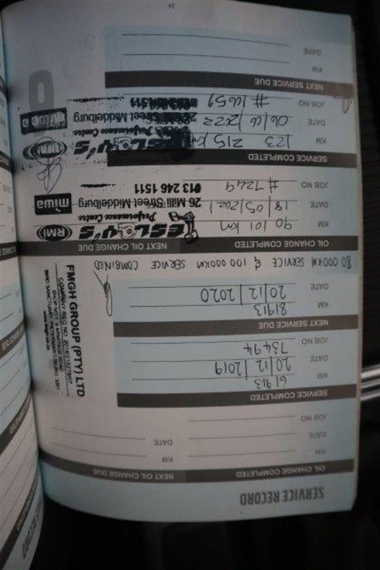 SERVICE RECORD
OIL CHANGE COMPLETED
NEXT OIL CHANGE DUE
KM
KM
DATE
DATE
JOB NO
SERVICE COMPLETED
KM 61913
DATE 20/12/2019
JOB NO 73494
NEXT SERVICE DUE
KM 81913
DATE 20/12/2020
FMGH GROUP (PTY) LTD
80 000KM SERVICE & 100 000KM SERVICE COMBINED
OIL CHANGE COMPLETED
NEXT OIL CHANGE DUE
KM 90 101 km
DATE 18/05/2021
JOB NO # 7249
ESLY'S
RMI
Performance Centre
26 Milli Street Middelburg
013 246 1511
miwa
SERVICE COMPLETED
KM 123 215 km
DATE 06/06/2022
JOB NO # 1659
ESLY'S
RMI
Performance Centre
Street Middelburg
NEXT SERVICE DUE
KM
DATE